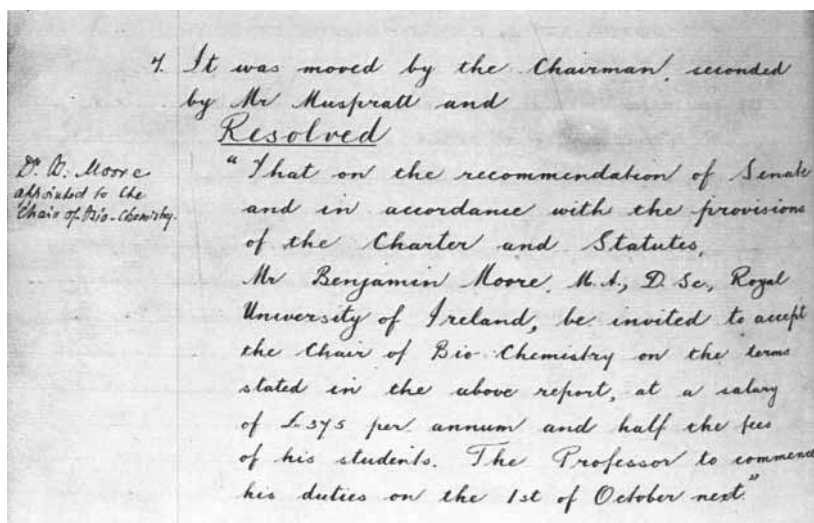 7. It was moved by the Chairman, seconded
by Mr Muspratt and
Resolved
Dr. B. Moore
appointed to the
Chair of Bio-Chemistry.
"That on the recommendation of Senate
and in accordance with the provisions
of the Charter and Statutes,
Mr Benjamin Moore, M.A., D.Sc., Royal
University of Ireland, be invited to accept
the Chair of Bio-Chemistry on the terms
stated in the above report, at a salary
of £375 per annum and half the fees
of his students. The Professor to commence
his duties on the 1st of October next."